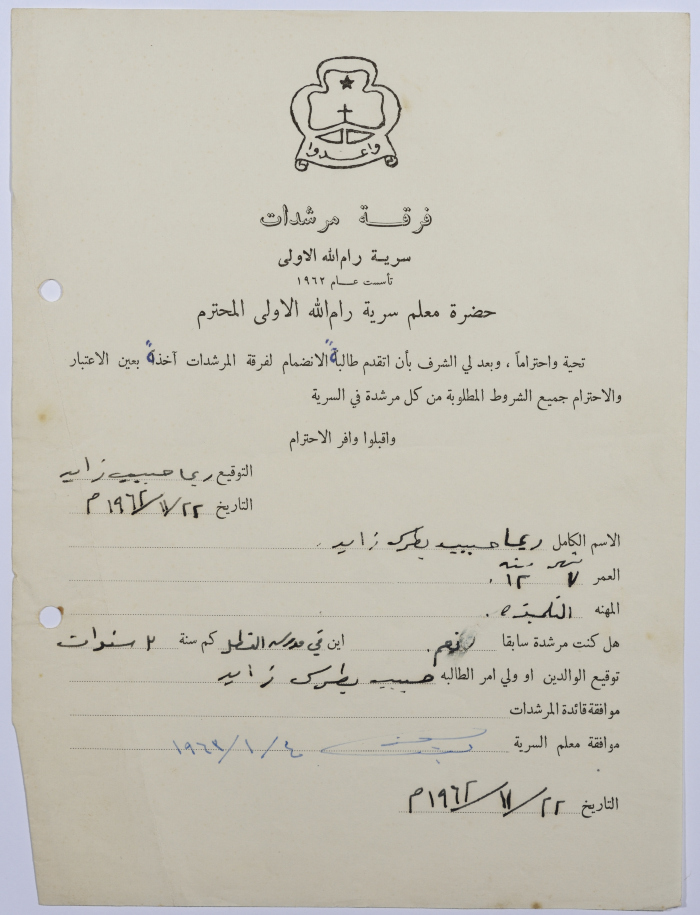 واعدوا
فرقة مرشدات
سرية رام الله الاولى
تأسست عام ١٩٦٢
حضرة معلم سرية رام الله الاولى المحترم
تحية واحتراماً ، وبعد لي الشرف بأن اتقدم طالبةً الانضمام لفرقة المرشدات آخذةً بعين الاعتبار
والاحترام جميع الشروط المطلوبة من كل مرشدة في السرية
واقبلوا وافر الاحترام
التوقيع ريما حبيب زايد
التاريخ ٢٢/١١/١٩٦٢ م
الاسم الكامل ريما حبيب بطرس زايد .
العمر ٧ شهر ١٢ سنه .
المهنه التلمذه .
هل كنت مرشدة سابقا نعم . اين في مدرسة كم سنة ٢ سنوات
توقيع الوالدين او ولي امر الطالبه حبيب بطرس زايد
موافقة قائدة المرشدات
موافقة معلم السرية ٤/١/١٩٦٣
التاريخ ٢٢/١١/١٩٦٢ م